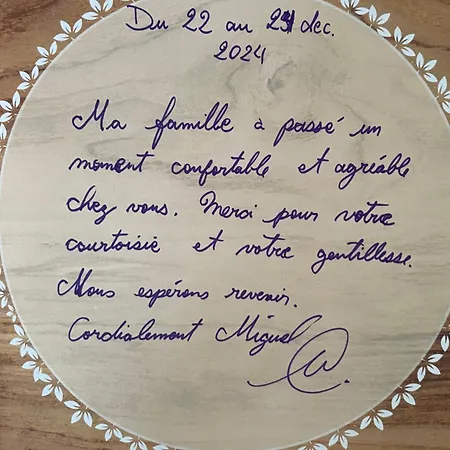 Du 22 au 23 dec.
2024
Ma famille à passé un
moment confortable et agréable
chez vous. Merci pour votre
courtoisie et votre gentillesse.
Nous espérons revenir.
Cordialement Miguel